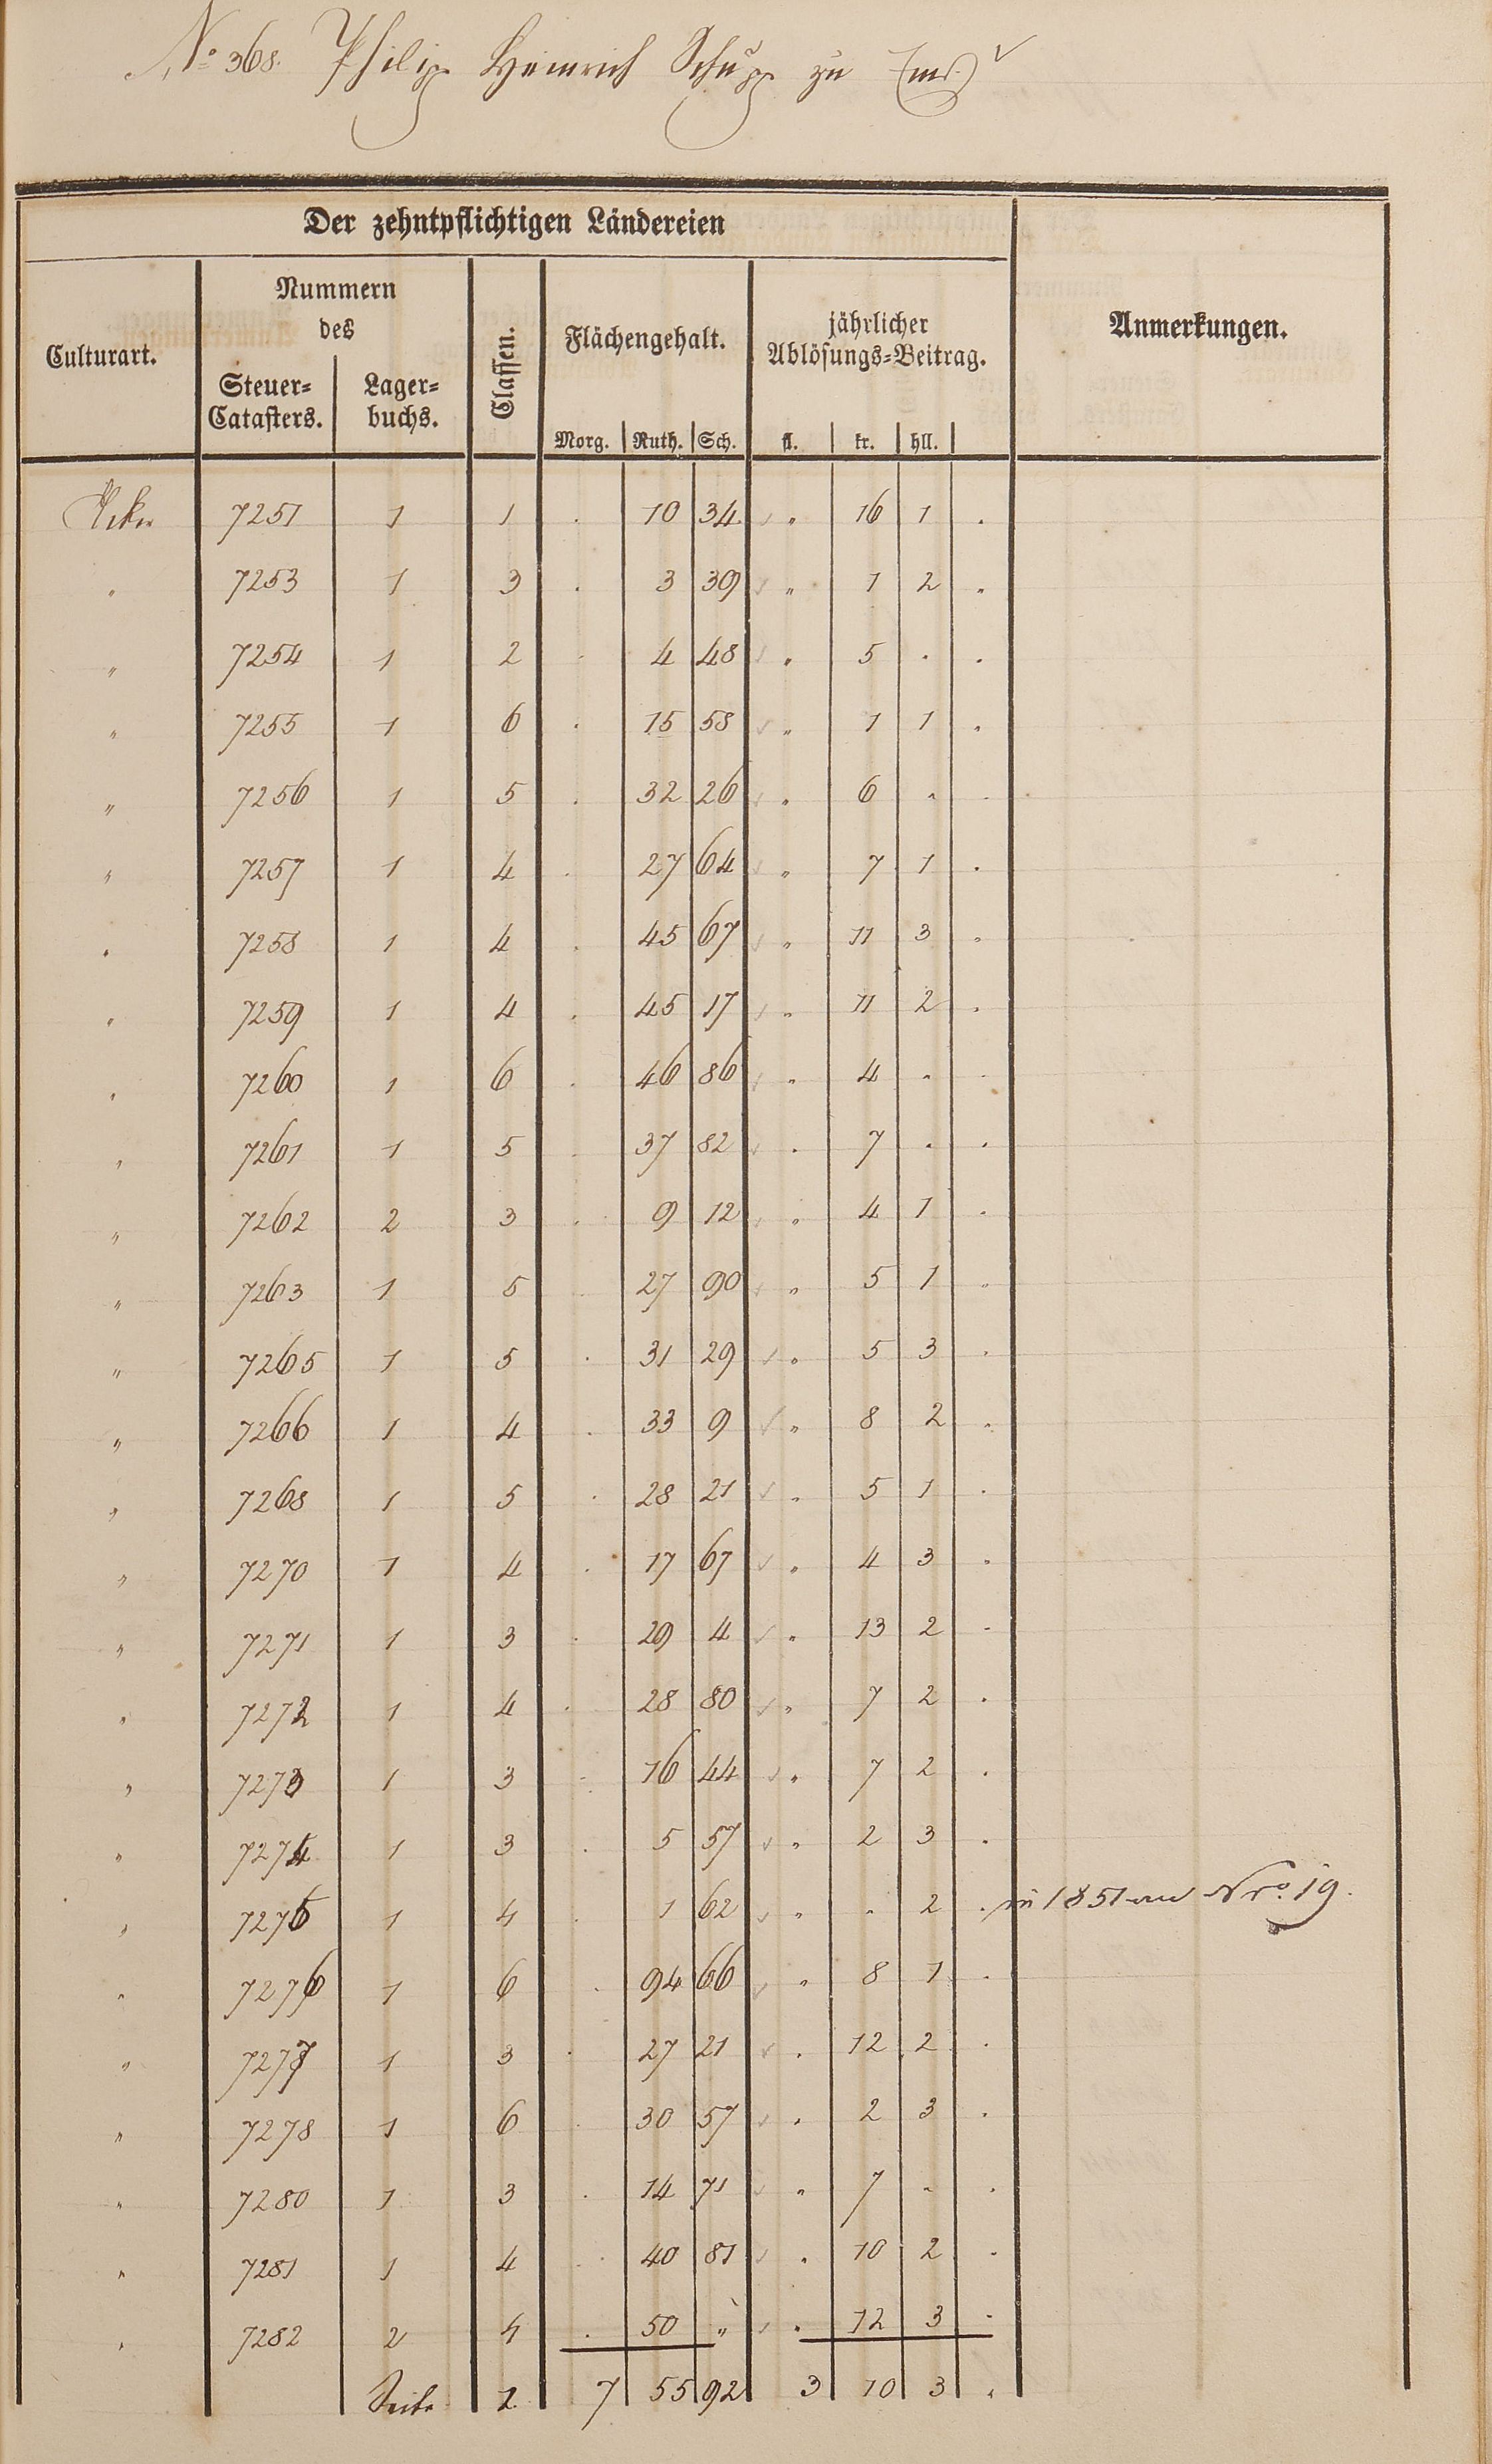 No 368. Philipp Heinrich Schupp zu Ems
Der zehntpflichtigen Ländereien
Culturart. Nummern des Steuer=Catasters. Lager=buchs. Classen. Flächengehalt. jährlicher Ablösungs=Beitrag. Anmerkungen.
Morg. Ruth. Sch. fl. kr. hll.
Acker 7251 1 1 . 10 34 " 16 1 .
" 7253 1 3 . 3 39 " 1 2 "
" 7254 1 2 . 4 48 " 5 . .
" 7255 1 6 . 15 58 " 1 1 .
" 7256 1 5 . 32 26 " 6 . .
" 7257 1 4 . 27 64 " 7 1 .
" 7258 1 4 . 45 67 " 11 3 .
" 7259 1 4 . 45 17 " 11 2 .
" 7260 1 6 . 46 86 " 4 . .
" 7261 1 5 . 37 82 . 7 . .
" 7262 2 3 . 9 12 " 4 1 .
" 7263 1 5 . 27 90 " 5 1 .
" 7265 1 5 . 31 29 " 5 3 .
" 7266 1 4 . 33 9 " 8 2 .
" 7268 1 5 . 28 21 " 5 1 .
" 7270 1 4 . 17 67 " 4 3 .
" 7271 1 3 . 29 4 " 13 2 .
" 7272 1 4 . 28 80 " 7 2 .
" 7273 1 3 . 16 44 " 7 2 .
" 7274 1 3 . 5 57 " 2 3 .
" 7275 1 4 . 1 62 " . 2 . in 1851 an Nro. 19.
" 7276 1 6 . 94 66 " 8 1 .
" 7277 1 3 . 27 21 . 12 2 .
" 7278 1 6 . 30 57 . 2 3 .
" 7280 1 3 . 14 71 " 7 . .
" 7281 1 4 . 40 81 . 10 2 .
" 7282 2 4 . 50 " . 12 3 .
Seite 1. 7 55 92 3 10 3 .